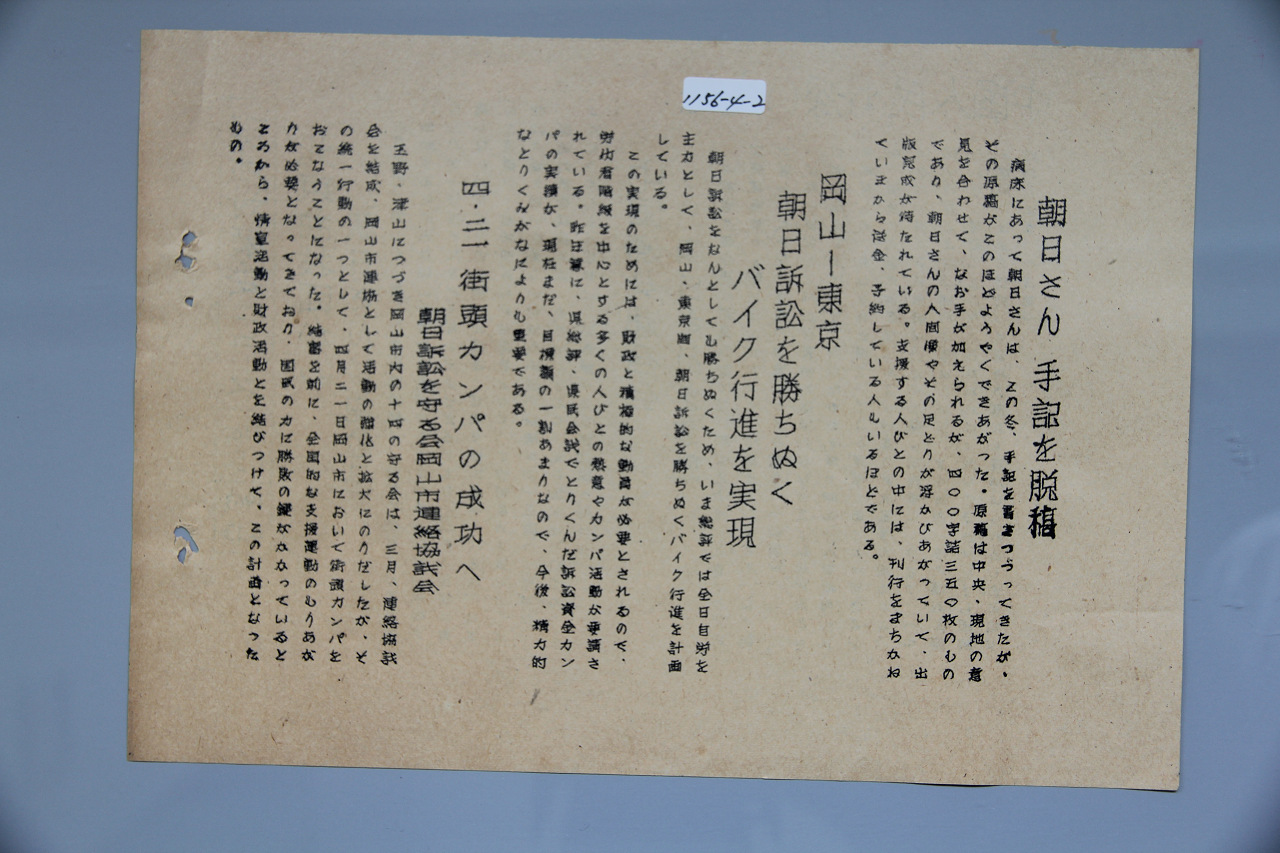 1156-4-2
朝日さん 手記を脱稿
病床にあって朝日さんは、この冬、手記を書きつづってきたが、
その原稿がこのほどようやくできあがった。原稿は中央、現地の意
見を合わせて、なお手が加えられるが、四〇〇字詰三五〇枚のもの
であり、朝日さんの人間像やその足どりが浮かびあがっていて、出
版完成が待たれている。支援する人びとの中には、刊行をまちかね
ていまから送金、予約している人もいるほどである。
岡山ー東京
朝日訴訟を勝ちぬく
バイク行進を実現
朝日訴訟をなんとしても勝ちぬくため、いま総評では全日自労を
主力として、岡山、東京間、朝日訴訟を勝ちぬくバイク行進を計画
している。
この実現のためには、財政と積極的な動員が必要とされるので、
労仂者階級を中心とする多くの人びとの熱意やカンパ活動が要請さ
れている。昨年暮に、県総評、県民会議でとりくんだ訴訟資金カン
パの実績が、現在まだ、目標額の一割あまりなので、今後、精力的
なとりくみがなによりも重要である。
四・二一 街頭カンパの成功へ
朝日訴訟を守る会岡山市連絡協議会
玉野・津山につづき岡山市内の十四の守る会は、三月、連絡協議
会を結成、岡山市連協として活動の強化と拡大にのりだしたが、そ
の統一行動の一つとして、四月二一日岡山市において街頭カンパを
おこなうことになった。結審を前に、全国的な支援運動のもりあが
りが必要となってきており、国民の力に勝敗の鍵がかかっていると
ころから、情宣活動と財政活動とを結びつけて、この計画となった
もの。